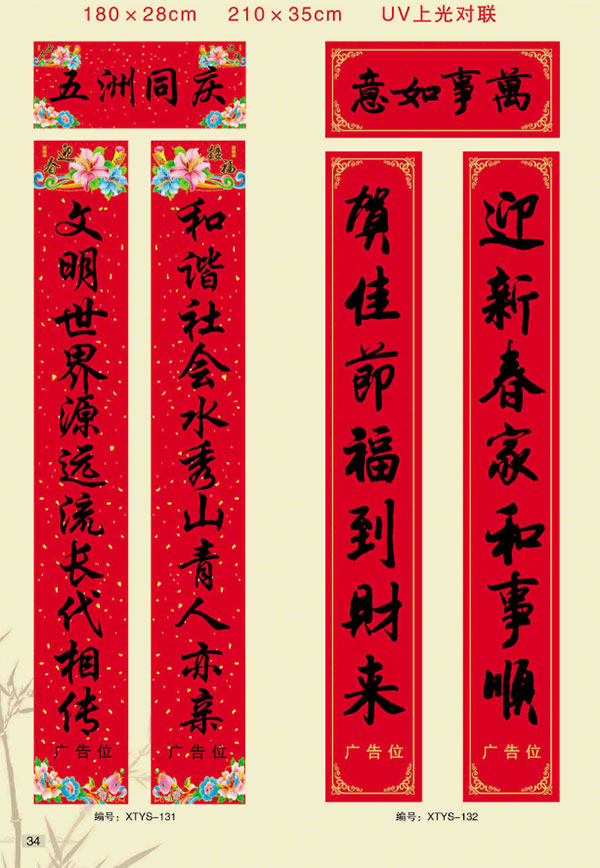 180×28cm 210×35cm UV上光对联
五洲同庆
接福
和谐社会水秀山青人亦亲
广告位
迎春
文明世界源远流长代相传
广告位
编号：XTYS-131
萬事如意
迎新春家和事順
广告位
賀佳節福到財来
广告位
编号：XTYS-132
34